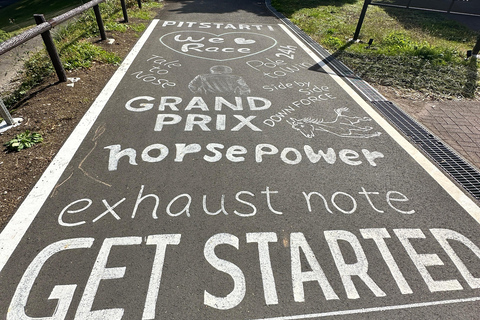 PIT START!
We Race
24H
Tale to Nose
Pole to win
Side by Side
GRAND PRIX
DOWNFORCE
horsepower
exhaust note
GET STARTED